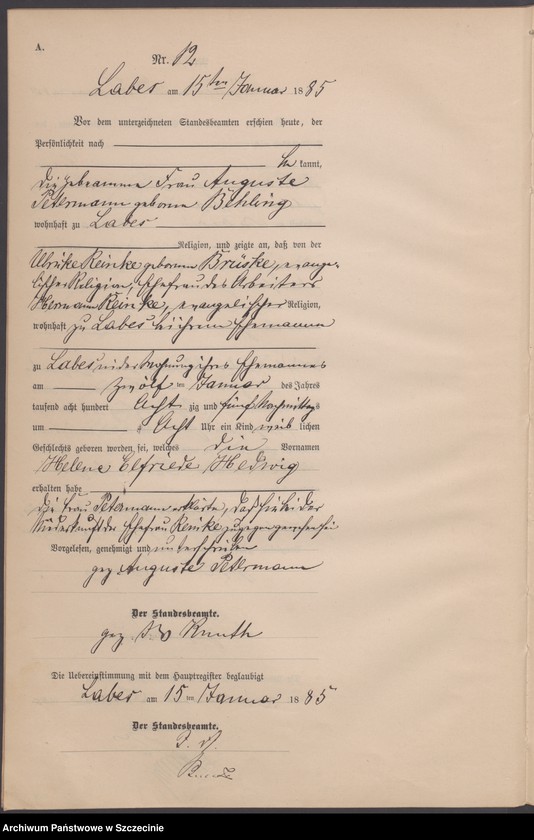 A.
Nr. 12
Labes am 15ten Januar 1885
Vor dem unterzeichneten Standesbeamten erschien heute, der
Persönlichkeit nach
be kannt,
die Hebeamme Frau Auguste
Petermann geborene Behling
wohnhaft zu Labes
Religion, und zeigte an, daß von der
Ulrike Reinke geborenen Brüske, evange-
lischer Religion, Ehefrau des Arbeiters
Hermann Reinke, evangelischer Religion,
wohnhaft zu Labes bei ihrem Ehemanne
zu Labes in der Wohnung ihres Ehemannes
am zwölften Januar des Jahres
tausend acht hundert acht zig und fünf Nachmittags
um acht Uhr ein Kind weib lichen
Geschlechts geboren worden sei, welches die Vornamen
Helene Elfriede Hedwig
erhalten habe
Die Frau Petermann erklärte, daß sie bei der
Niederkunft der Ehefrau Reinke zugegen gewesen sei
Vorgelesen, genehmigt und unterschrieben
gez Auguste Petermann
Der Standesbeamte.
gez Knuth
Die Uebereinstimmung mit dem Hauptregister beglaubigt
Labes am 15ten Januar 1885
Der Standesbeamte.
Archiwum Państwowe w Szczecinie